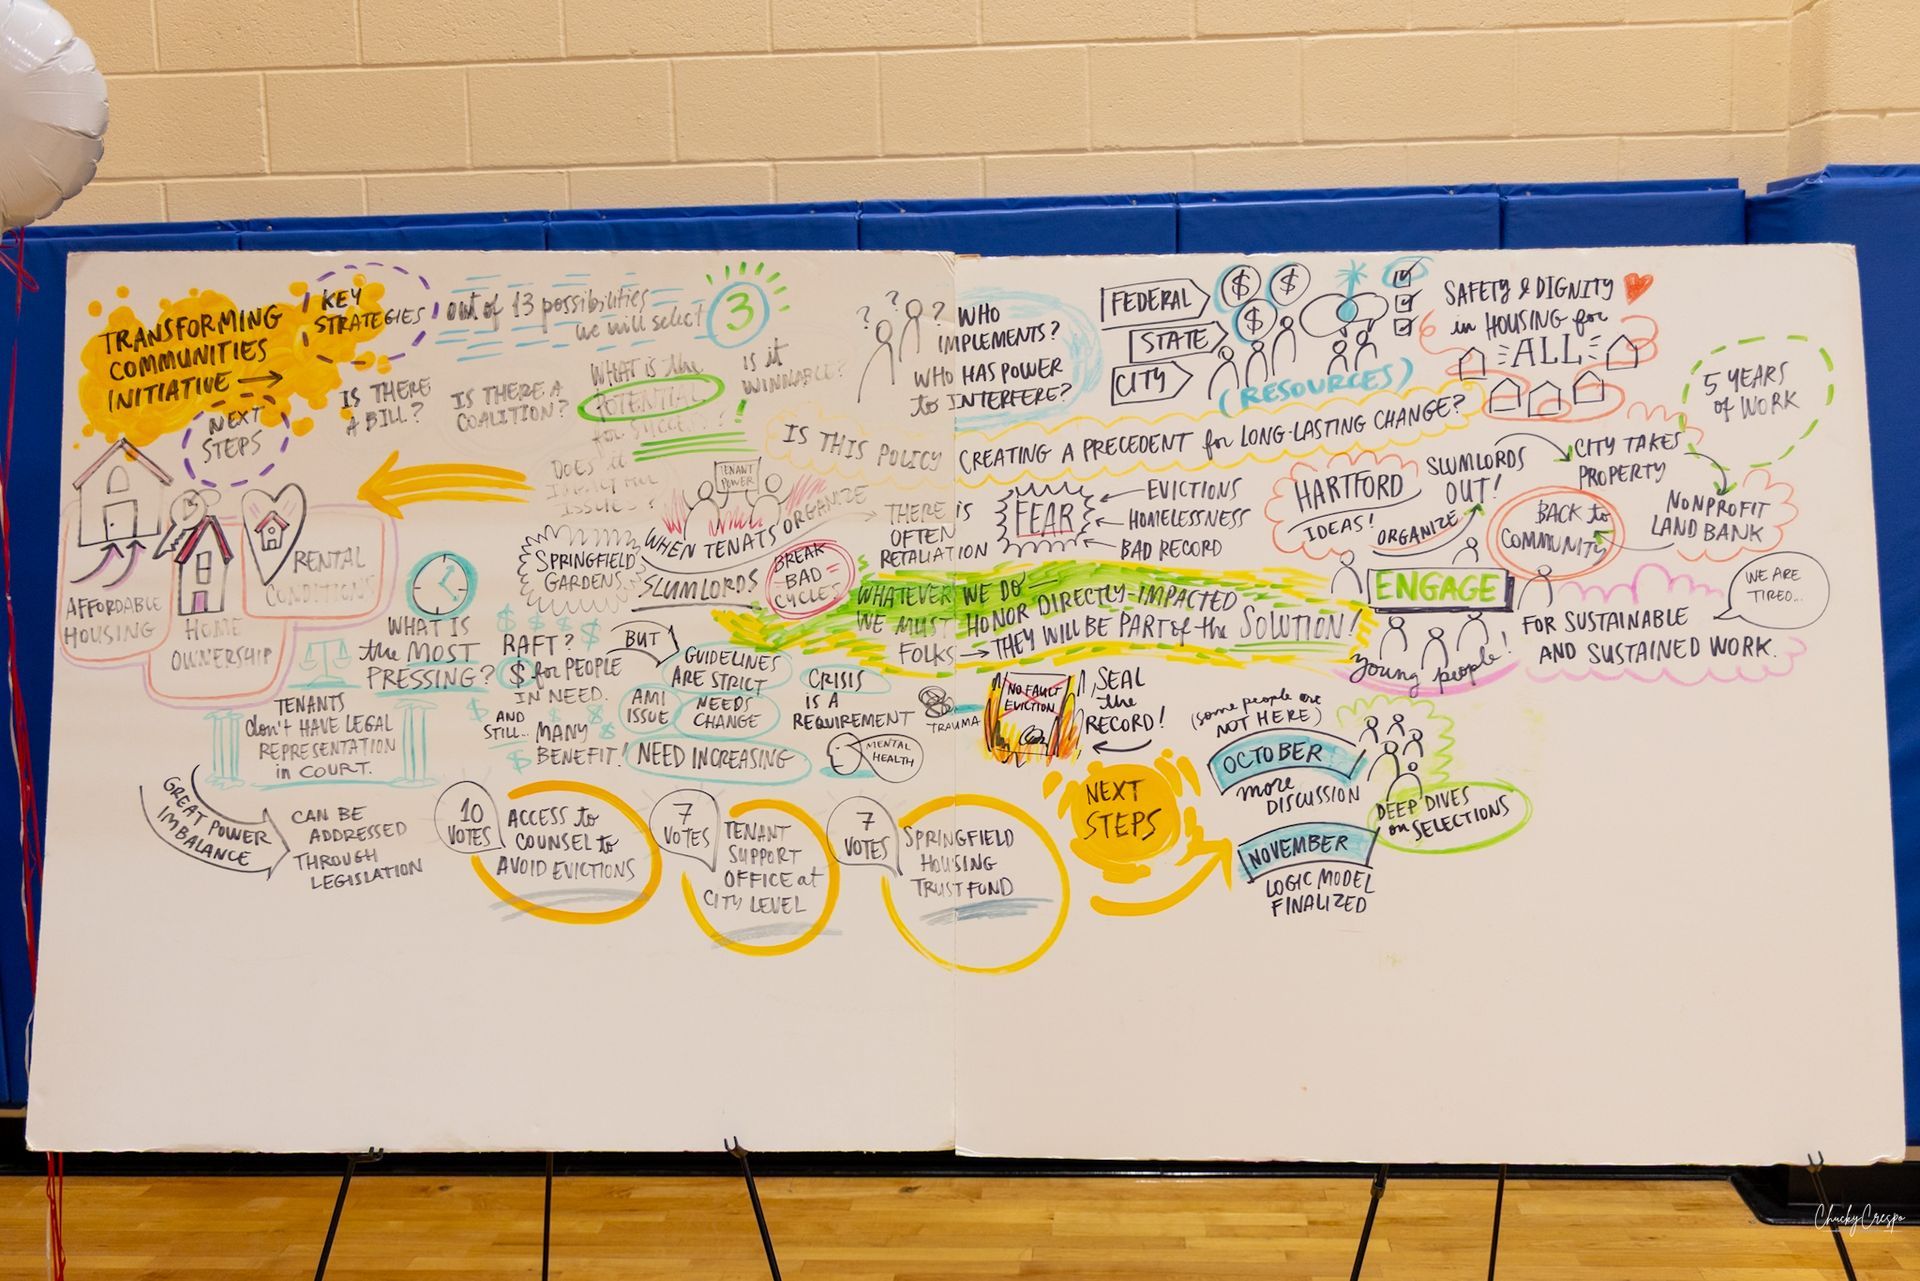 TRANSFORMING
COMMUNITIES
INITIATIVE
KEY
STRATEGIES
out of 13 possibilities
we will select
3
NEXT
STEPS
IS THERE
A BILL?
IS THERE A
COALITION?
WHAT IS the
POTENTIAL
for SUCCESS?
IS it
WINNABLE?
DOES it
IMPACT OUR
ISSUES?
? ?
?
WHO
IMPLEMENTS?
WHO HAS POWER
to INTERFERE?
FEDERAL
STATE
CITY
$ $
$
(RESOURCES)
SAFETY & DIGNITY
in HOUSING for
ALL
5 YEARS
of WORK
IS THIS POLICY CREATING A PRECEDENT for LONG-LASTING CHANGE?
AFFORDABLE
HOUSING
HOME
OWNERSHIP
RENTAL
CONDITIONS
WHAT IS
the MOST
PRESSING?
SPRINGFIELD
GARDENS
TENANT
POWER
WHEN TENATS ORGANIZE
SLUMLORDS
BREAK
BAD
CYCLES
THERE IS
OFTEN
RETALIATION
FEAR
EVICTIONS
HOMELESSNESS
BAD RECORD
HARTFORD
IDEAS!
ORGANIZE
SLUMLORDS
OUT!
CITY TAKES
PROPERTY
NONPROFIT
LAND BANK
BACK to
COMMUNITY
WHATEVER WE DO —
WE MUST HONOR DIRECTLY-IMPACTED
FOLKS → THEY WILL BE PART of the SOLUTION!
ENGAGE
young people!
FOR SUSTAINABLE
AND SUSTAINED WORK.
WE ARE
TIRED...
TENANTS
don't HAVE LEGAL
REPRESENTATION
in COURT.
GREAT POWER
IMBALANCE
CAN BE
ADDRESSED
THROUGH
LEGISLATION
RAFT?
$ for PEOPLE
IN NEED.
AND
STILL...
MANY
BENEFIT!
BUT
GUIDELINES
ARE STRICT
AMI
ISSUE
NEEDS
CHANGE
NEED INCREASING
CRISIS
IS A
REQUIREMENT
MENTAL
HEALTH
TRAUMA
NO FAULT
EVICTION
SEAL
the
RECORD!
10
VOTES
ACCESS to
COUNSEL to
AVOID EVICTIONS
7
VOTES
TENANT
SUPPORT
OFFICE at
CITY LEVEL
7
VOTES
SPRINGFIELD
HOUSING
TRUST FUND
NEXT
STEPS
(some people are
NOT HERE)
OCTOBER
more
DISCUSSION
DEEP DIVES
on SELECTIONS
NOVEMBER
LOGIC MODEL
FINALIZED
Chucky Crespo